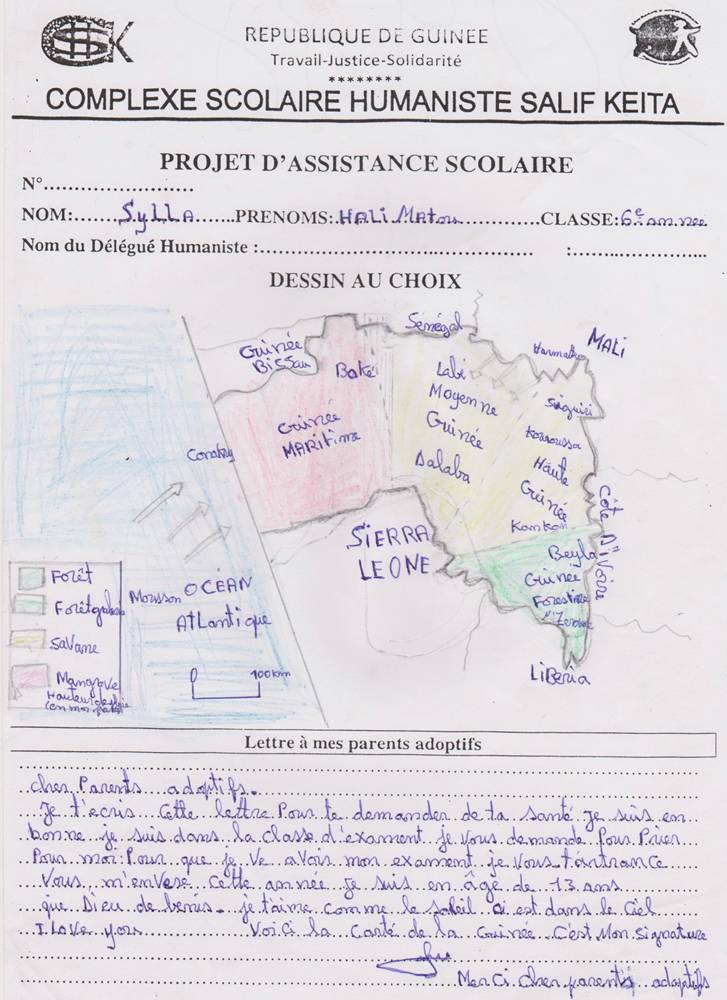 REPUBLIQUE DE GUINEE
Travail-Justice-Solidarité
********
COMPLEXE SCOLAIRE HUMANISTE SALIF KEITA
PROJET D'ASSISTANCE SCOLAIRE
N°........................
NOM:.......Sylla......PRENOMS:.HALiMatou.............CLASSE:6e annee
Nom du Délégué Humaniste :....................................... :........................
DESSIN AU CHOIX
Guinée Bissau
Sénégal
MALi
Boké
Labé
Siguiri
Guinée MARitime
Moyenne Guinée
Kouroussa
Conakry
Dalaba
Haute Guinée
Kankan
Côte D'Ivoire
SiERRA LEONE
Beyla
Guinée Forestière
N'Zerekore
LiBeria
Forêt
Savane
Mangrove
OCEAN
Atlantique
100km
Lettre à mes parents adoptifs
cher Parents adoptifs.
Je t'ecris Cette lettre Pour te demander de ta santé je suis en
bonne je suis dans la classe d'exament je vous demande Pous Prier
Pour moi Pour que je Ve avois mon exament je Vous
Vous m'envese Cette année Je suis en âge de 13 ans
que Dieu de benis. je t'aime comme le soleil qi est dans le Ciel
I Love you Voici la Carté de la Guinée C'est Mon Signature
Merci cher parents adoptifs